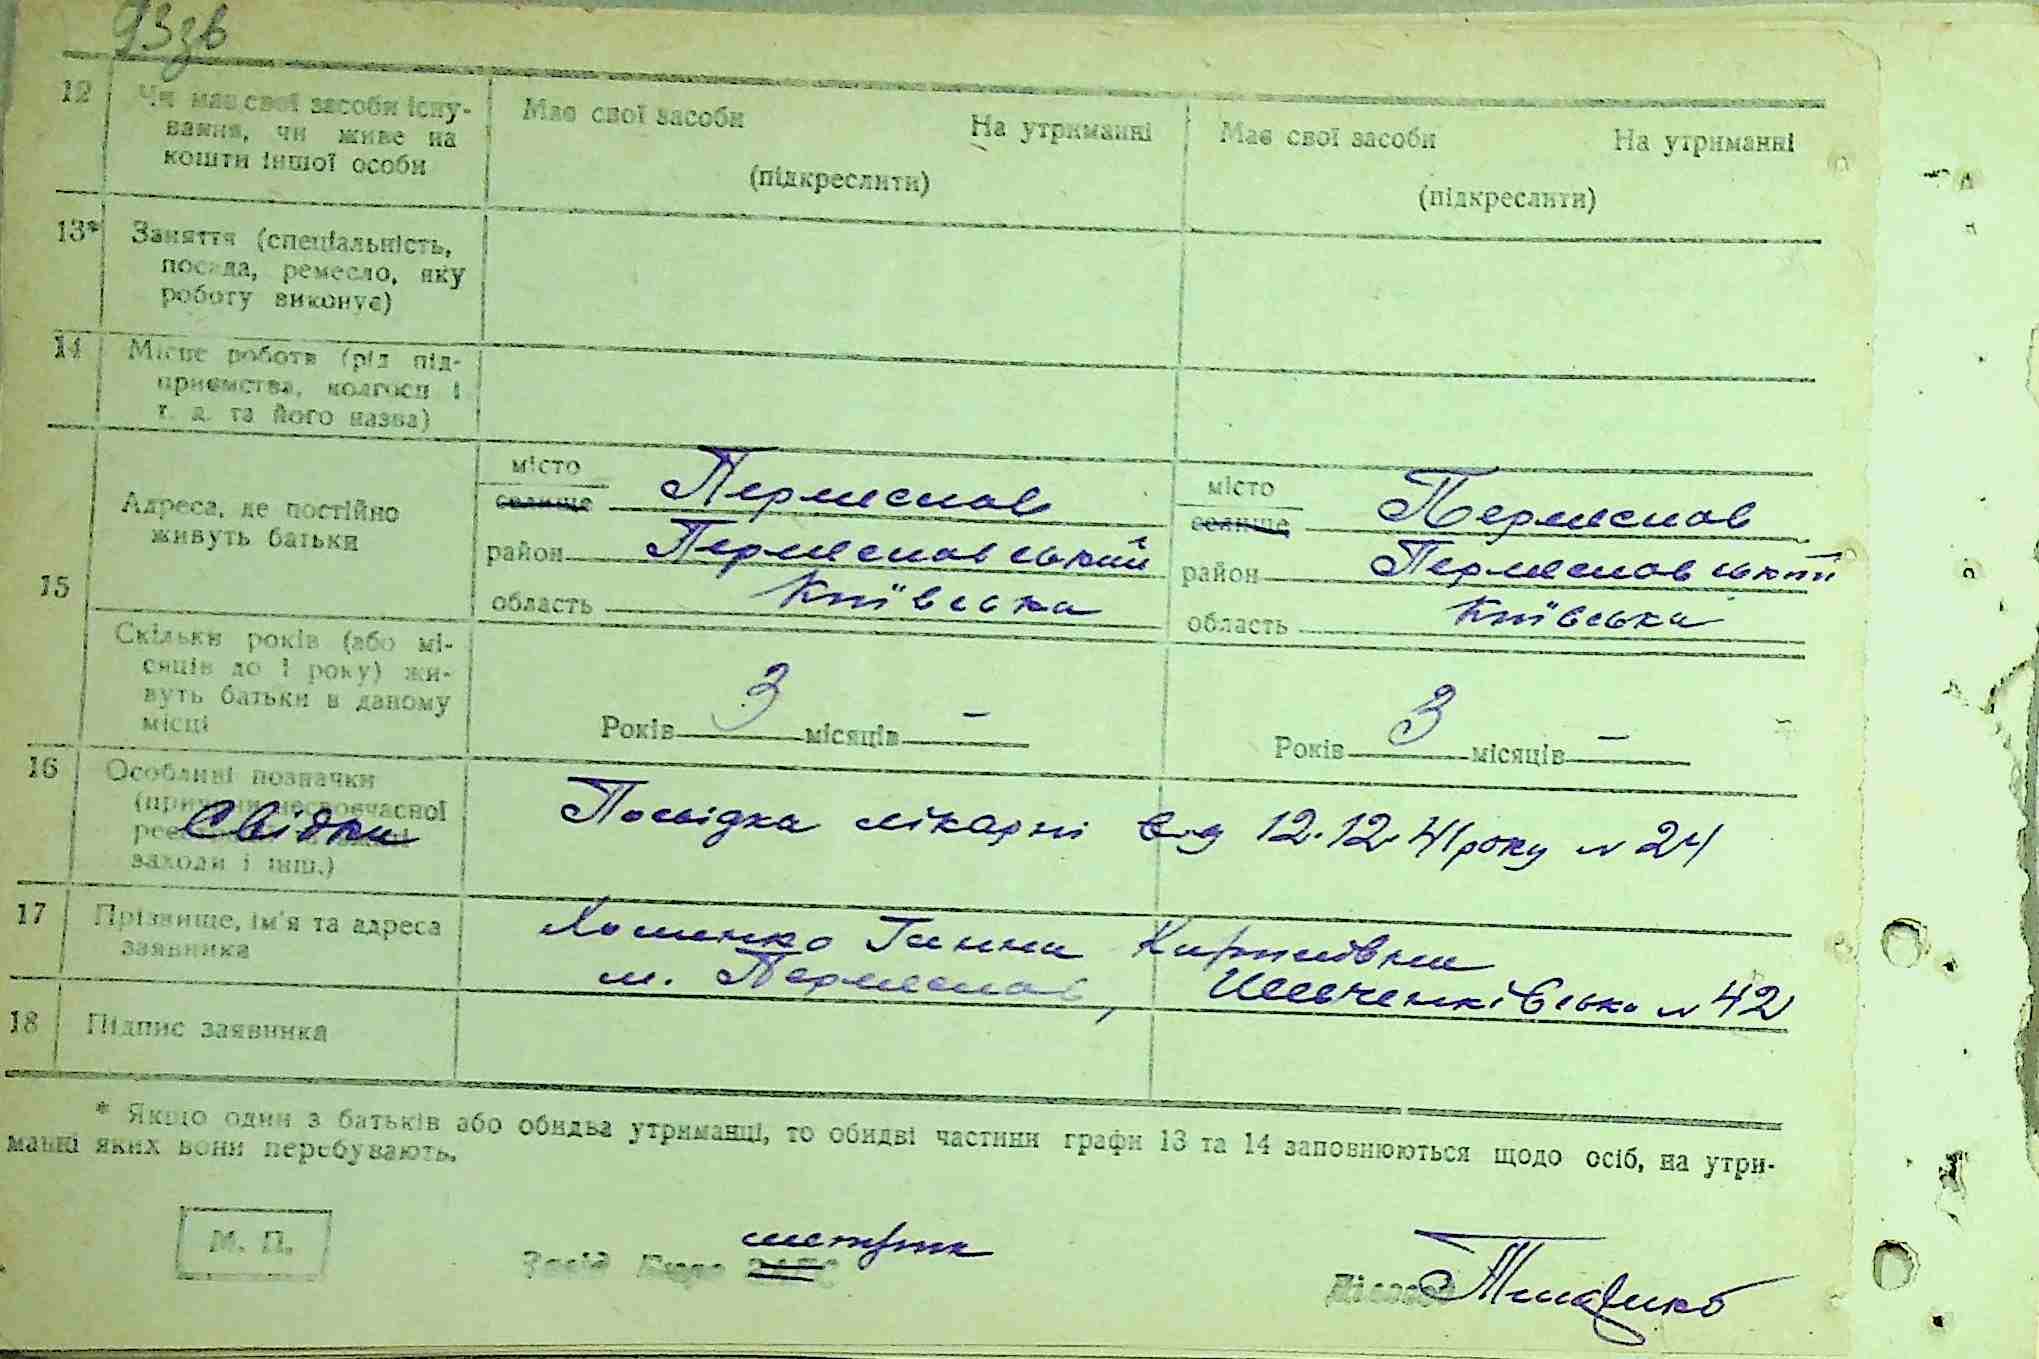 93зв
12 Чи має свої засоби існу- Має свої засоби На утриманні Має свої засоби На утриманні
вання, чи живе на
кошти іншої особи (підкреслити) (підкреслити)
13* Заняття (спеціальність,
посада, ремесло, яку
роботу виконує)
14 Місце роботи (рід під-
приємства, колгосп і
т. д. та його назва)
15 Адреса, де постійно
живуть батьки
місто
селище Переяслав
район Переяславський
область Київська
місто
селище Переяслав
район Переяславський
область Київська
Скільки років (або мі-
сяців до 1 року) жи-
вуть батьки в даному
місці
Років 3 місяців – Років 3 місяців –
16 Особливі позначки
(причини несвоєчасної
Свідки
заходи і інш.)
Посвідка лікарні від 12.12.41 року № 24
17 Прізвище, ім'я та адреса
заявника
Хоменко Ганна Кирилівна
м. Переяслав, Шевченківська № 42
18 Підпис заявника
* Якщо один з батьків або обидва утриманці, то обидві частини графи 13 та 14 заповнюються щодо осіб, на утри-
манні яких вони перебувають.
М. П.
метрик
Завід Бюро ЗАГС
Діловод